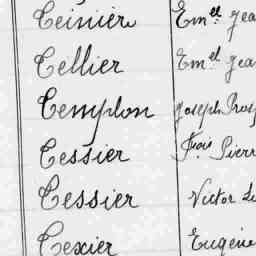 Teinier Em.el Jea
Tellier Em.el Jea
Templon Joseph Prosp
Tessier Fçois Pierr
Tessier Victor Lu
Texier Eugène